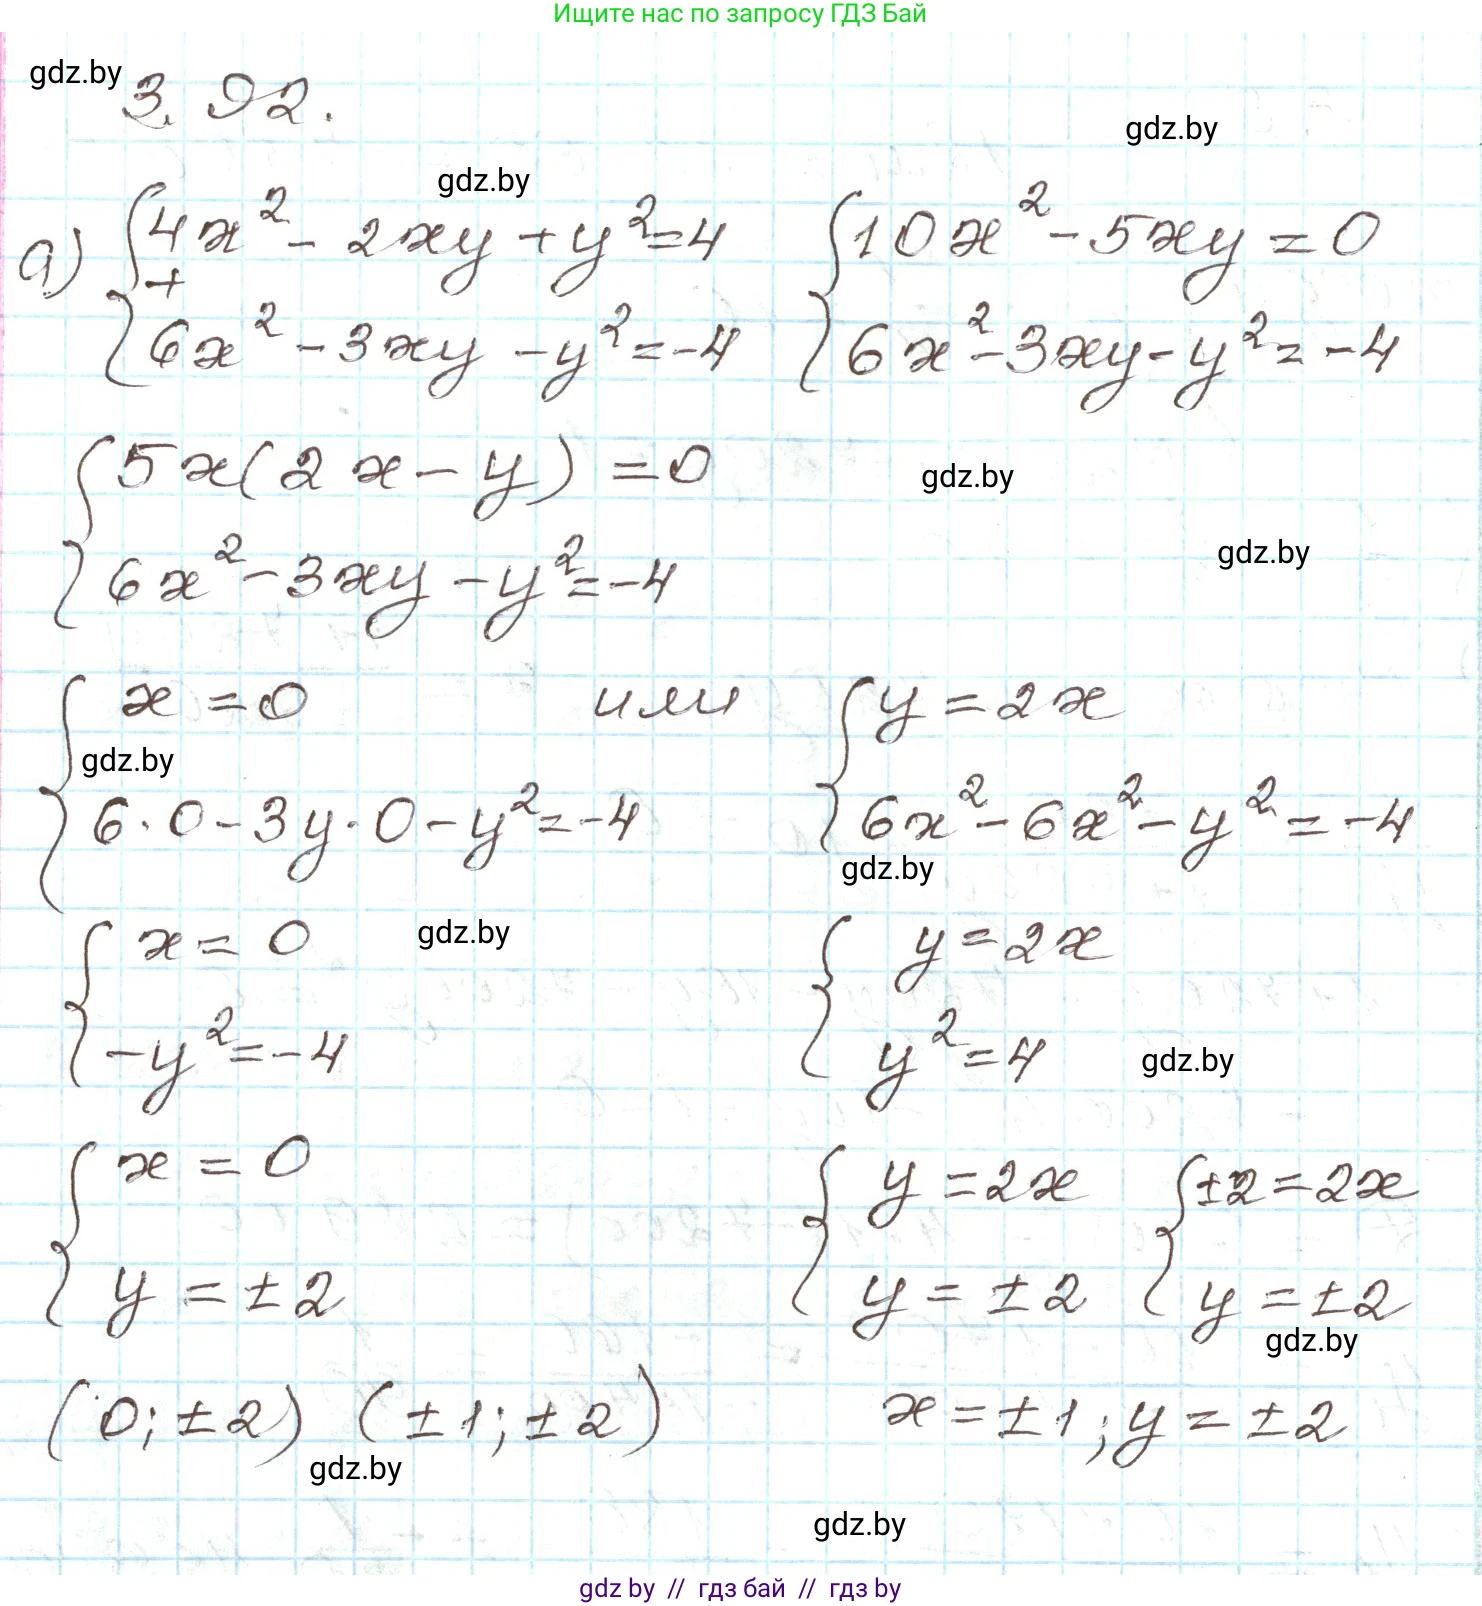 Ищите нас по запросу ГДЗ Бай
gdz.by
3.92.
gdz.by
gdz.by
а) { 4x² - 2xy + y² = 4
+
6x² - 3xy - y² = -4
{ 10x² - 5xy = 0
6x² - 3xy - y² = -4
{ 5x(2x - y) = 0
6x² - 3xy - y² = -4
gdz.by
gdz.by
{ x = 0
6·0 - 3y·0 - y² = -4
или
{ y = 2x
6x² - 6x² - y² = -4
gdz.by
gdz.by
{ x = 0
-y² = -4
gdz.by
{ y = 2x
y² = 4
gdz.by
{ x = 0
y = ±2
{ y = 2x
y = ±2
{ ±2 = 2x
y = ±2
gdz.by
(0; ±2) (±1; ±2)
x = ±1; y = ±2
gdz.by
gdz.by
gdz by // гдз бай // гдз by